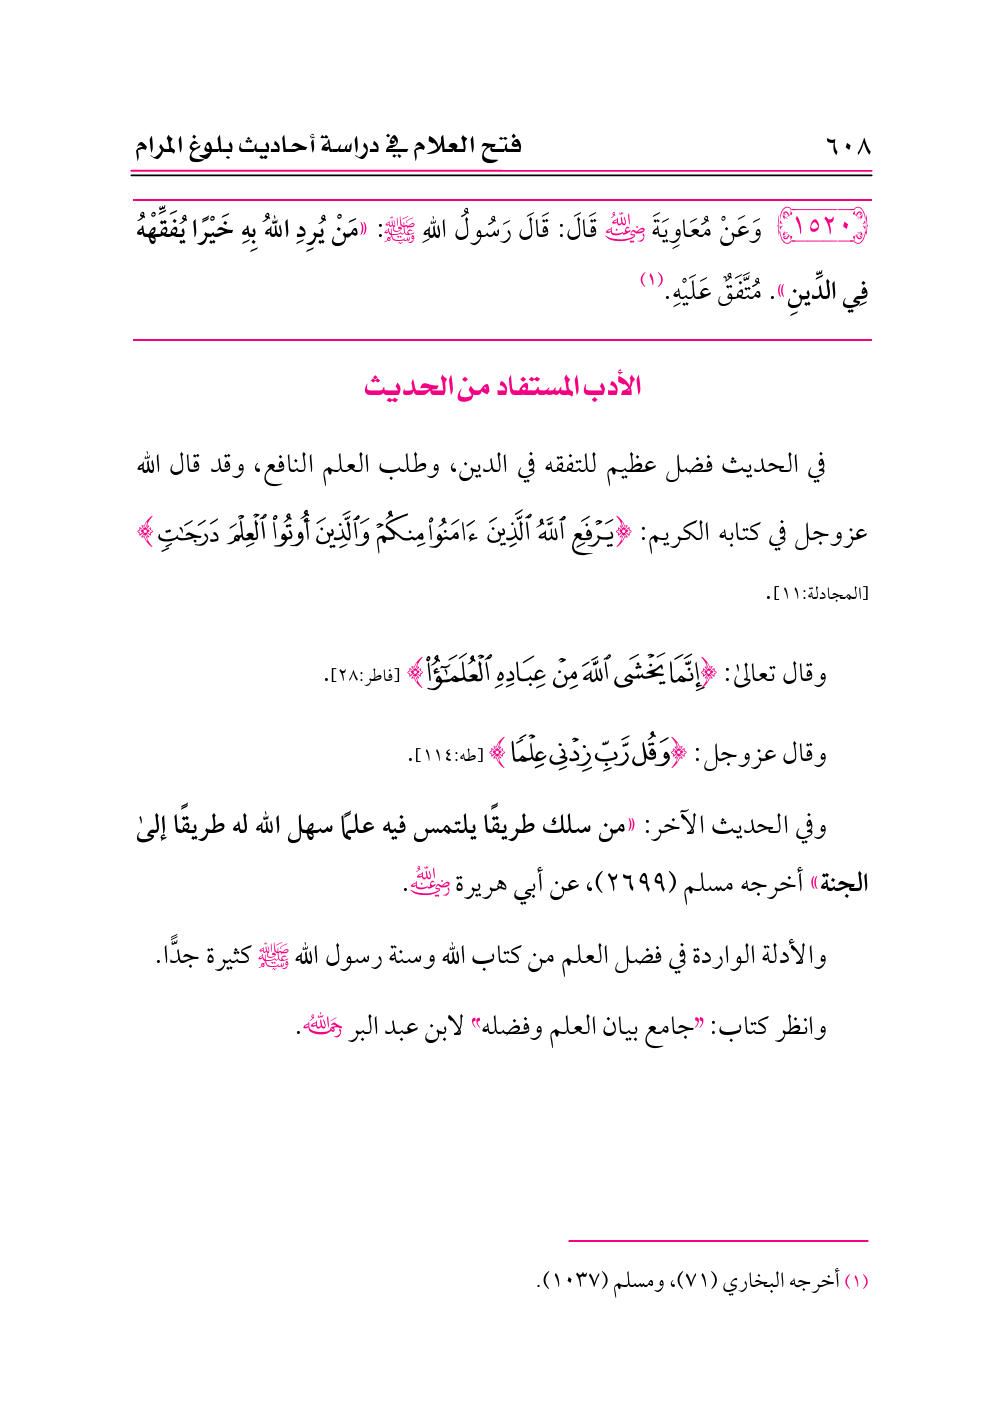 ٦٠٨ فتح العلام في دراسة أحاديث بلوغ المرام
١٥٢٠ وَعَنْ مُعَاوِيَةَ رضي الله عنه قَالَ: قَالَ رَسُولُ اللهِ ﷺ: «مَنْ يُرِدِ اللهُ بِهِ خَيْرًا يُفَقِّهْهُ
فِي الدِّينِ». مُتَّفَقٌ عَلَيْهِ.(١)
الأدب المستفاد من الحديث
في الحديث فضل عظيم للتفقه في الدين، وطلب العلم النافع، وقد قال الله
عزوجل في كتابه الكريم: ﴿يَرۡفَعِ ٱللَّهُ ٱلَّذِينَ ءَامَنُواْ مِنكُمۡ وَٱلَّذِينَ أُوتُواْ ٱلۡعِلۡمَ دَرَجَٰتٖ﴾
[المجادلة:١١].
وقال تعالىٰ: ﴿إِنَّمَا يَخۡشَى ٱللَّهَ مِنۡ عِبَادِهِ ٱلۡعُلَمَٰٓؤُاْ﴾ [فاطر:٢٨].
وقال عزوجل: ﴿وَقُل رَّبِّ زِدۡنِي عِلۡمٗا﴾ [طه:١١٤].
وفي الحديث الآخر: «من سلك طريقًا يلتمس فيه علمًا سهل الله له طريقًا إلىٰ
الجنة» أخرجه مسلم (٢٦٩٩)، عن أبي هريرة رضي الله عنه.
والأدلة الواردة في فضل العلم من كتاب الله وسنة رسول الله ﷺ كثيرة جدًّا.
وانظر كتاب: "جامع بيان العلم وفضله" لابن عبد البر رحمه الله.
(١) أخرجه البخاري (٧١)، ومسلم (١٠٣٧).